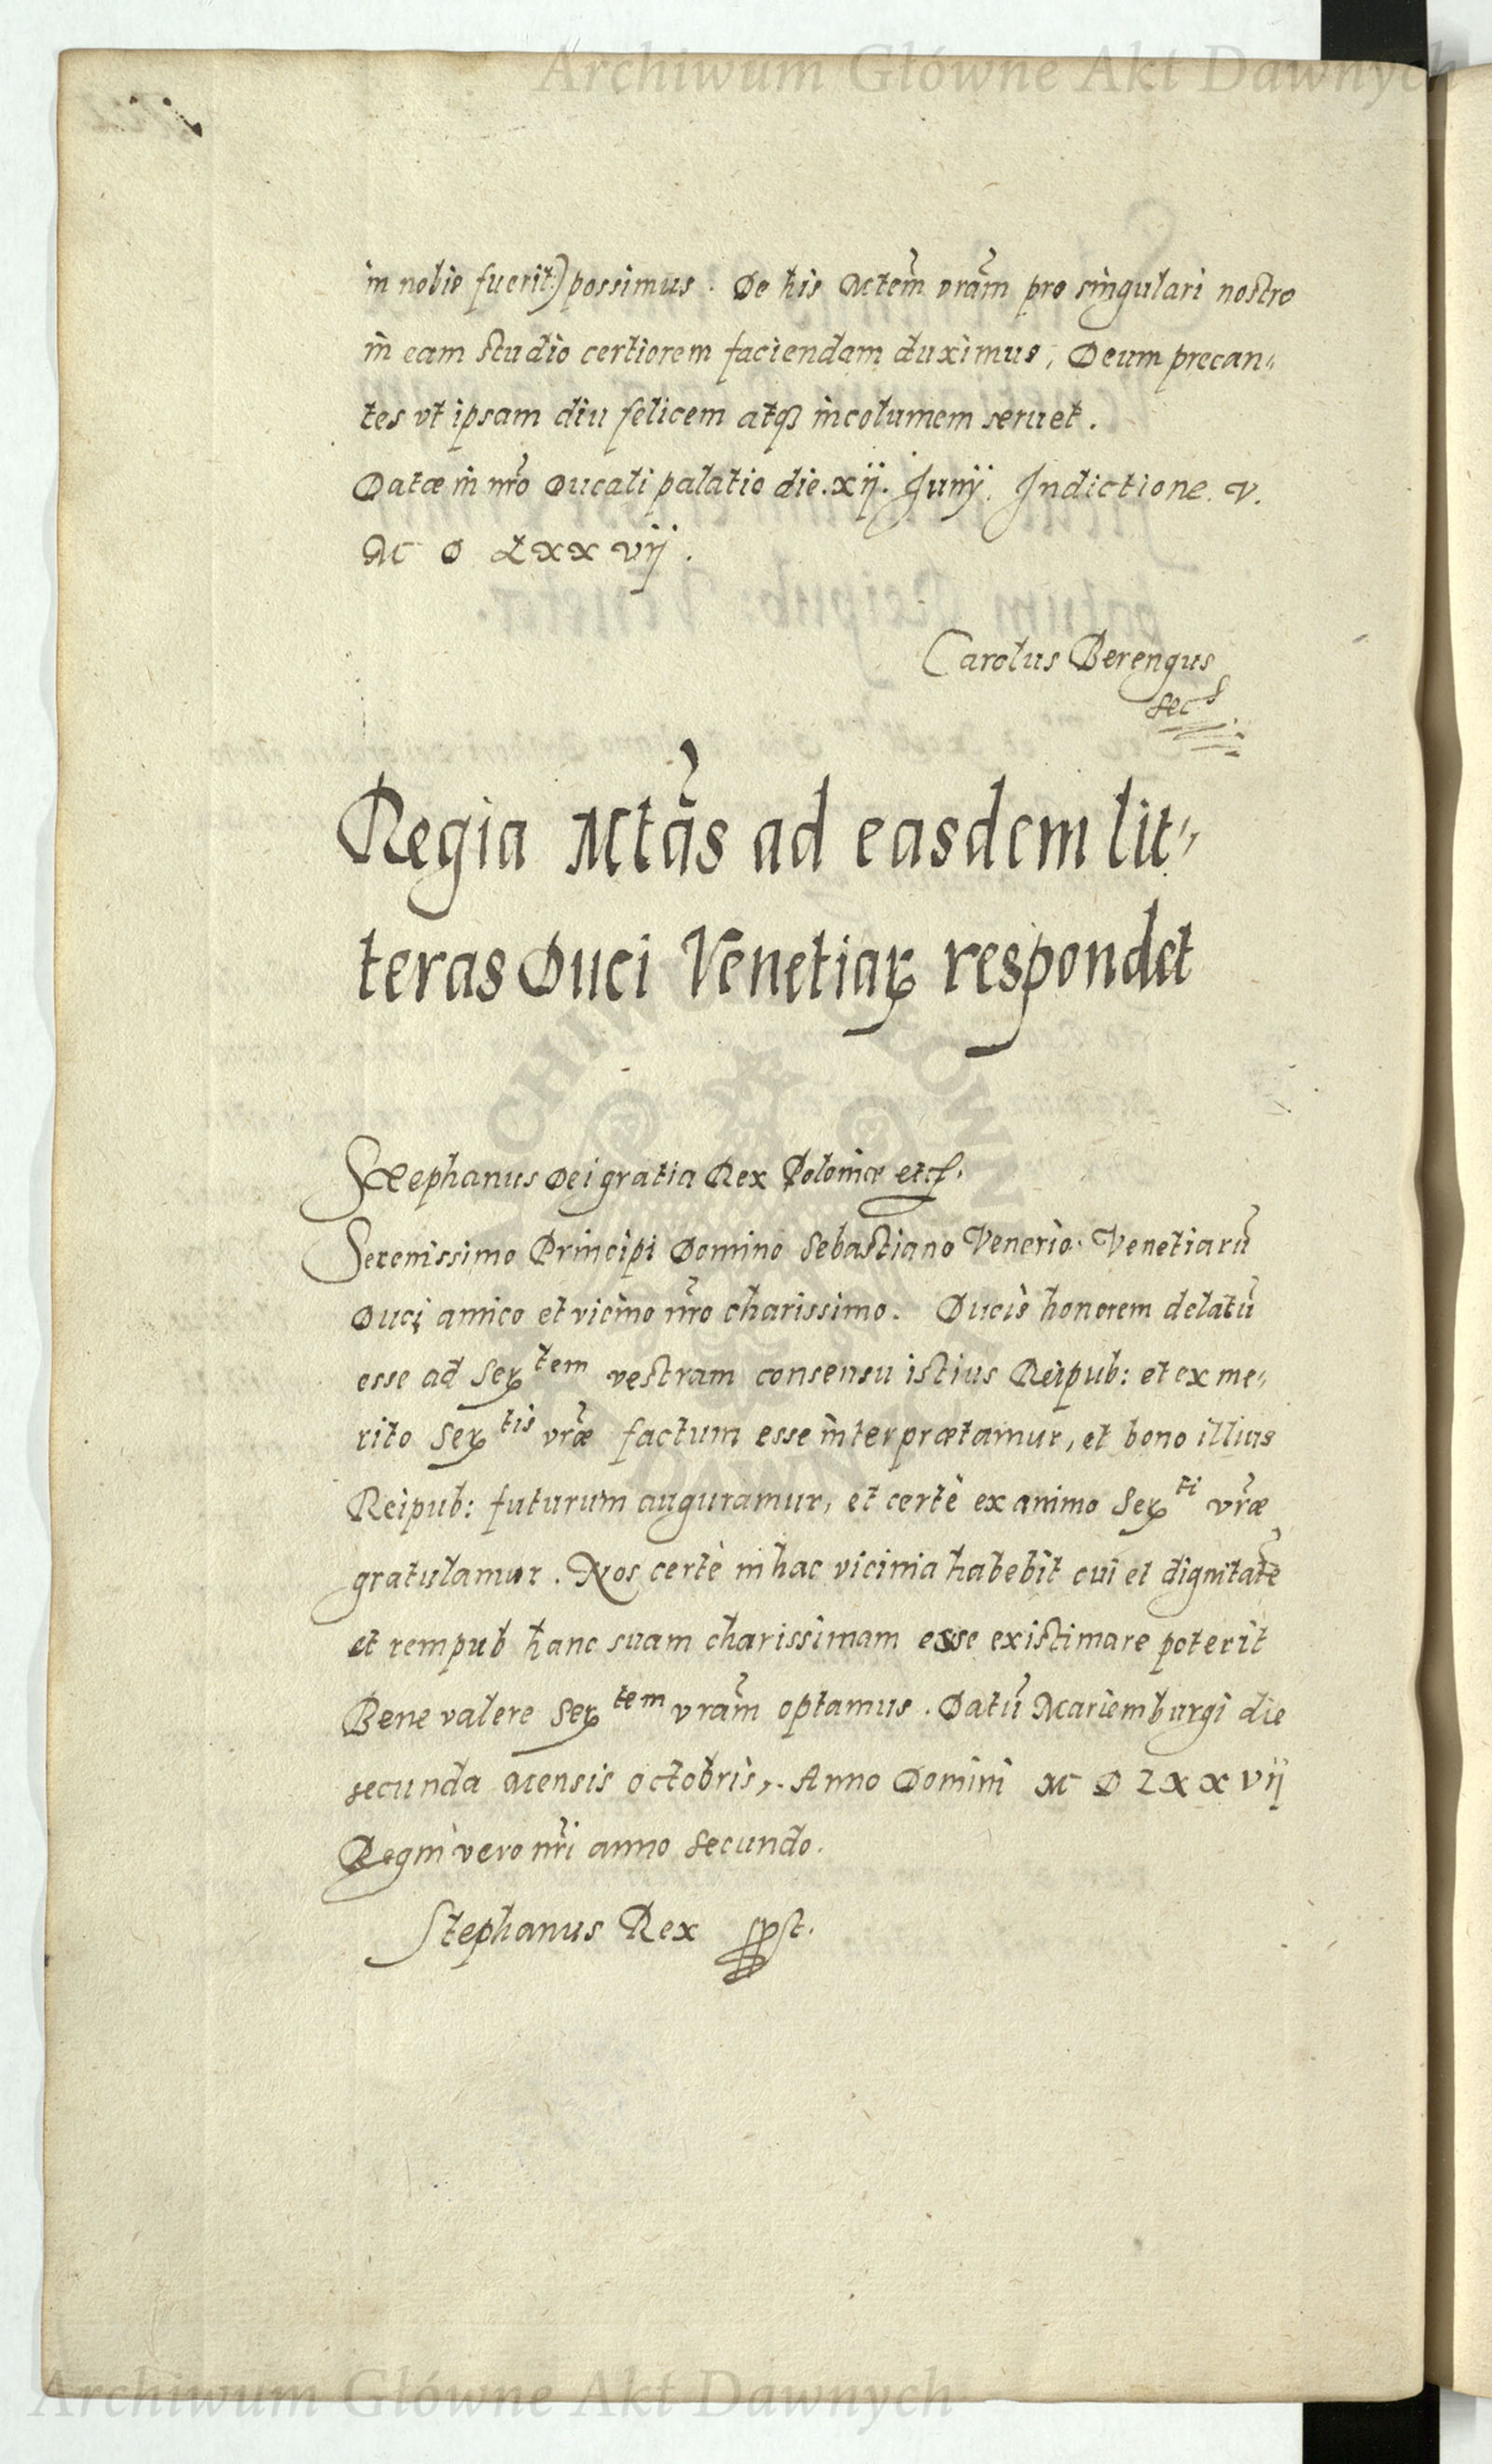 Archiwum Główne Akt Dawnych
in nobis fuerit:) possimus. De his Mtem̃ vrãm pro singulari nostro
in eam studio certiorem faciendam duximus, Deum precan„
tes vt ipsam diu felicem atq3 incolumem seruet.
Datæ in nr̃o Ducali palatio die. xij. Junij. Indictione. V.
M D LXXVij.
Carolus Berengus
Regia Mtãs ad easdem lit„
teras Duci Venetiaꝝ respondet
Stephanus Dei gratia Rex Poloniæ etc.
Serenissimo Principi Domino Sebastiano Venerio Venetiarũ
Duci amico et vicino nr̃o charissimo. Ducis honorem delatũ
esse ad Serᵗᵉᵐ vestram consensu istius Reipub: et ex me„
rito Serᵗⁱˢ vr̃æ factum esse interprætamur, et bono illius
Reipub: futurum auguramur, et certè ex animo Serᵗⁱ vr̃æ
gratulamur. Nos certè in hac vicinia habebit cui et dignitatẽ
et rempub hanc suam charissimam esse existimare poterit
Bene valere Serᵗᵉᵐ vrãm optamus. Datũ Mariemburgi die
secunda Mensis octobris,. Anno Domini M D LXXVij
Regni vero nr̃i anno secundo.
Stephanus Rex sspst.
ARCHIWUM GŁÓWNE AKT DAWNYCH
Archiwum Główne Akt Dawnych